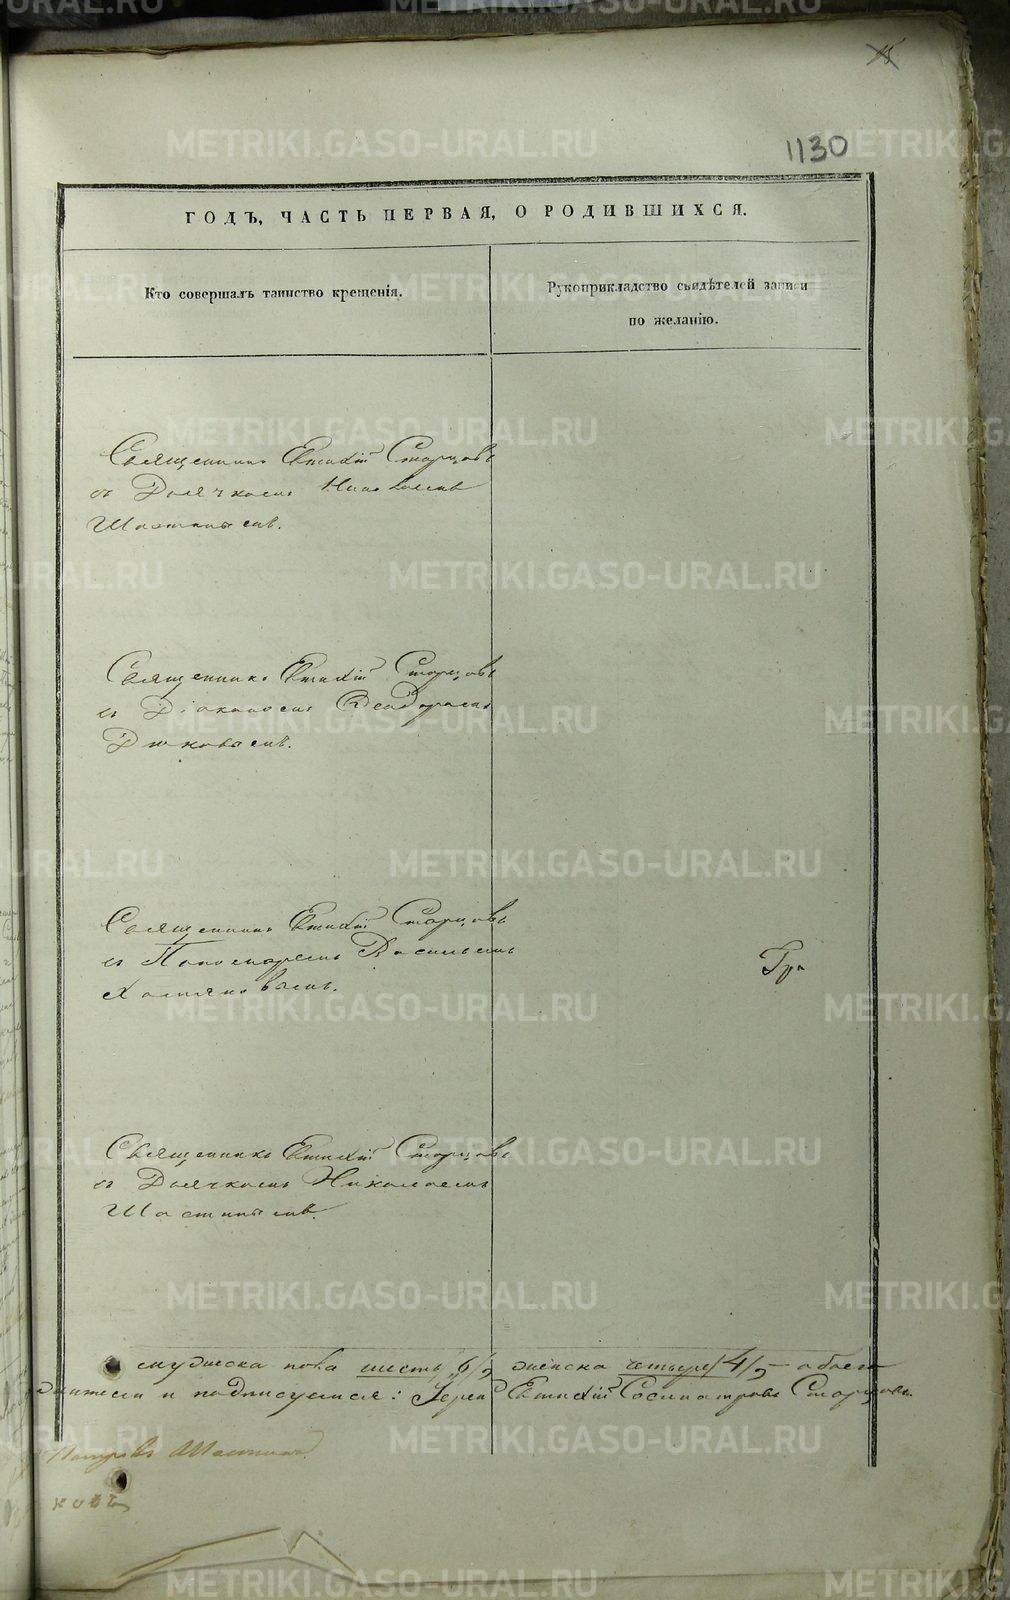 15
1130
ГОДЪ, ЧАСТЬ ПЕРВАЯ, О РОДИВШИХСЯ.
Кто совершалъ таинство крещенія.
Рукоприкладство свидѣтелей записи
по желанію.
Священникъ Евтихій Старцовъ
съ Дьячкомъ Николаемъ
Шастинымъ.
Священникъ Евтихій Старцовъ
съ Діакономъ Ѳеодоромъ
Священникъ Евтихій Старцовъ
съ Пономаремъ Василіемъ
Хомяковымъ.
Гра
Священникъ Евтихій Старцовъ
съ Дьячкомъ Николаемъ
Шастинымъ.
мужеска пола шесть /6/, женска четыре /4/, – обоего
и подписуемся: Іерей Евтихій Сосипатровъ Старцовъ.
Петровъ Шастинъ
ковъ
METRIKI.GASO-URAL.RU